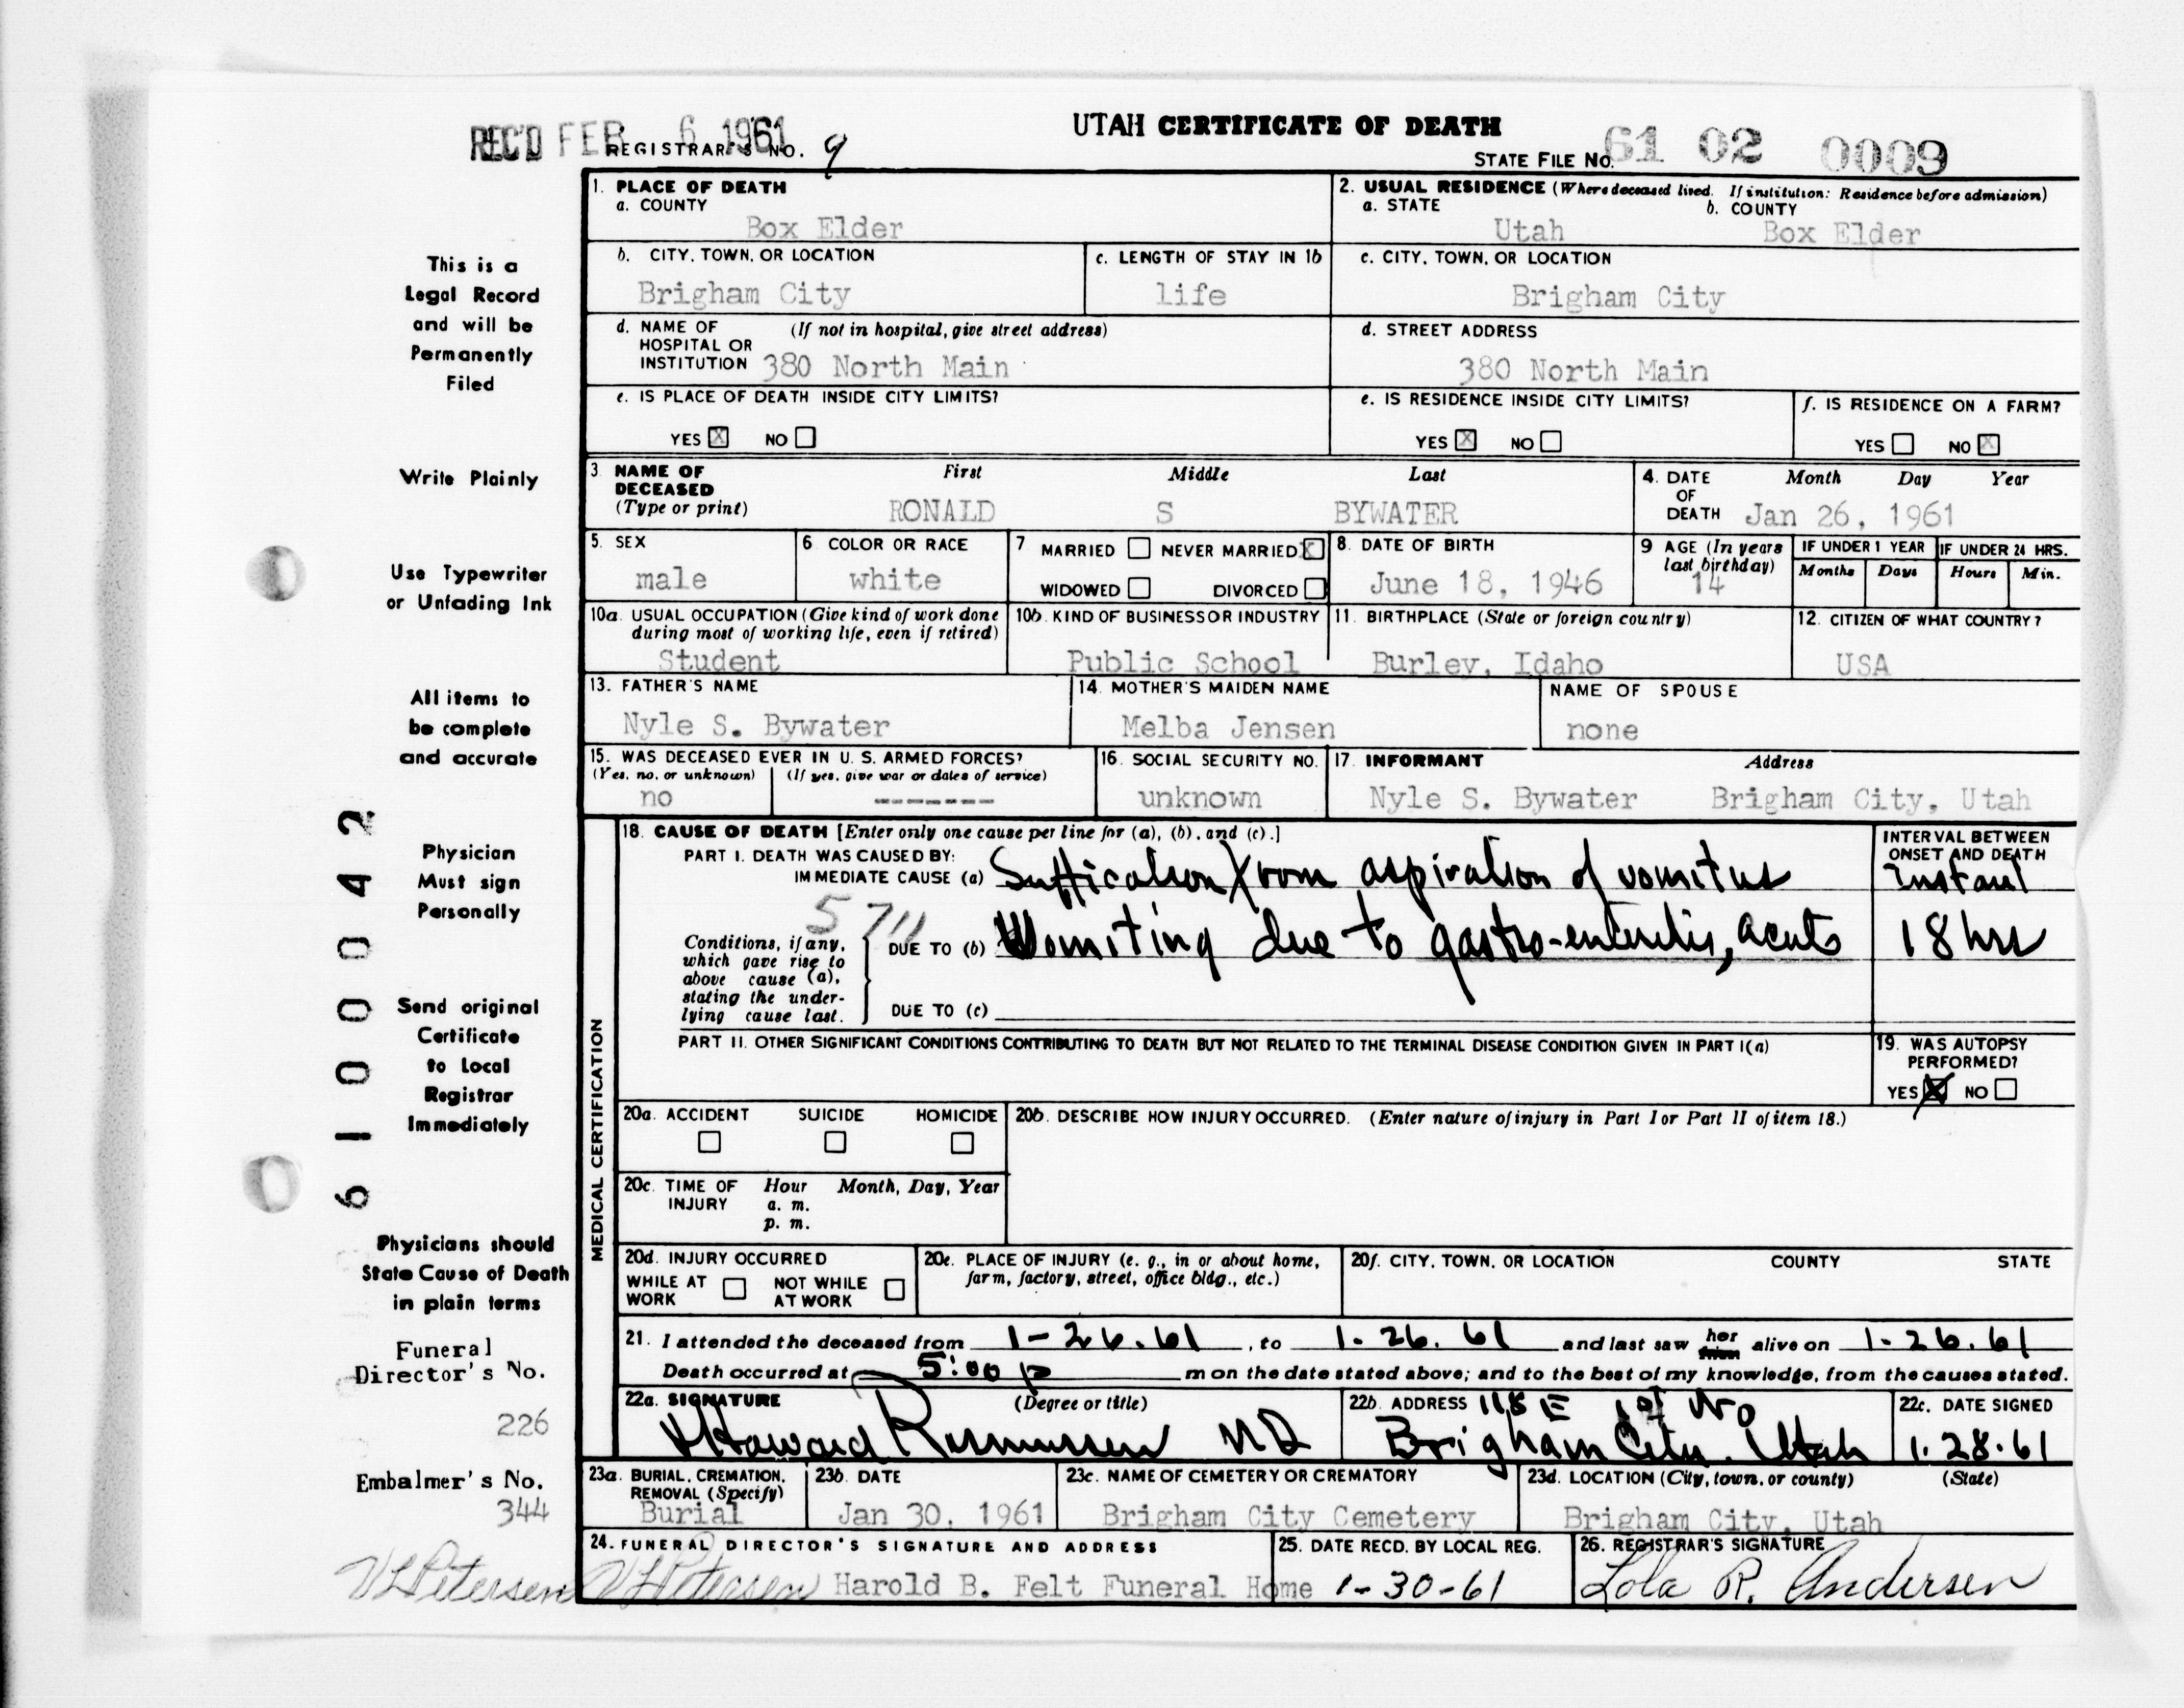 REC'D FEB 6 1961
REGISTRAR'S NO. 9
UTAH CERTIFICATE OF DEATH
STATE FILE No. 61 02 0009
This is a
Legal Record
and will be
Permanently
Filed
Write Plainly
Use Typewriter
or Unfading Ink
All items to
be complete
and accurate
Physician
Must sign
Personally
Send original
Certificate
to Local
Registrar
Immediately
Physicians should
State Cause of Death
in plain terms
Funeral
Director's No.
226
Embalmer's No.
344
V L Petersen
61 00042
1. PLACE OF DEATH
a. COUNTY
Box Elder
2. USUAL RESIDENCE (Where deceased lived. If institution: Residence before admission)
a. STATE b. COUNTY
Utah Box Elder
b. CITY, TOWN, OR LOCATION
Brigham City
c. LENGTH OF STAY IN 1b
life
c. CITY, TOWN, OR LOCATION
Brigham City
d. NAME OF (If not in hospital, give street address)
HOSPITAL OR
INSTITUTION 380 North Main
d. STREET ADDRESS
380 North Main
e. IS PLACE OF DEATH INSIDE CITY LIMITS?
YES X NO
e. IS RESIDENCE INSIDE CITY LIMITS?
YES X NO
f. IS RESIDENCE ON A FARM?
YES NO X
3 NAME OF First Middle Last
DECEASED
(Type or print) RONALD S BYWATER
4. DATE Month Day Year
OF
DEATH Jan 26, 1961
5. SEX
male
6 COLOR OR RACE
white
7 MARRIED NEVER MARRIED X
WIDOWED DIVORCED
8. DATE OF BIRTH
June 18, 1946
9 AGE (In years
last birthday)
14
IF UNDER 1 YEAR
Months Days
IF UNDER 24 HRS.
Hours Min.
10a. USUAL OCCUPATION (Give kind of work done
during most of working life, even if retired)
Student
10b. KIND OF BUSINESS OR INDUSTRY
Public School
11. BIRTHPLACE (State or foreign country)
Burley, Idaho
12. CITIZEN OF WHAT COUNTRY?
USA
13. FATHER'S NAME
Nyle S. Bywater
14. MOTHER'S MAIDEN NAME
Melba Jensen
NAME OF SPOUSE
none
15. WAS DECEASED EVER IN U. S. ARMED FORCES?
(Yes, no, or unknown) (If yes, give war or dates of service)
no ------
16. SOCIAL SECURITY NO.
unknown
17. INFORMANT Address
Nyle S. Bywater Brigham City, Utah
MEDICAL CERTIFICATION
18. CAUSE OF DEATH [Enter only one cause per line for (a), (b), and (c).]
PART I. DEATH WAS CAUSED BY:
IMMEDIATE CAUSE (a) Suffication from aspiration of vomitus
INTERVAL BETWEEN
ONSET AND DEATH
Instant
5711
Conditions, if any,
which gave rise to
above cause (a),
stating the under-
lying cause last.
DUE TO (b) Vomiting due to gastro-enteritis, acute 18 hrs
DUE TO (c)
PART II. OTHER SIGNIFICANT CONDITIONS CONTRIBUTING TO DEATH BUT NOT RELATED TO THE TERMINAL DISEASE CONDITION GIVEN IN PART I(a)
19. WAS AUTOPSY
PERFORMED?
YES X NO
20a. ACCIDENT SUICIDE HOMICIDE
20b. DESCRIBE HOW INJURY OCCURRED. (Enter nature of injury in Part I or Part II of item 18.)
20c. TIME OF Hour Month, Day, Year
INJURY a. m.
p. m.
20d. INJURY OCCURRED
WHILE AT NOT WHILE
WORK AT WORK
20e. PLACE OF INJURY (e. g., in or about home,
farm, factory, street, office bldg., etc.)
20f. CITY, TOWN, OR LOCATION COUNTY STATE
21. I attended the deceased from 1-26.61, to 1.26.61 and last saw her him alive on 1-26.61
Death occurred at 5:00 p m on the date stated above; and to the best of my knowledge, from the causes stated.
22a. SIGNATURE (Degree or title)
Howard Rasmussen MD
22b. ADDRESS 118 E 1st No
Brigham City. Utah
22c. DATE SIGNED
1.28.61
23a. BURIAL, CREMATION,
REMOVAL (Specify)
Burial
23b. DATE
Jan 30, 1961
23c. NAME OF CEMETERY OR CREMATORY
Brigham City Cemetery
23d. LOCATION (City, town, or county) (State)
Brigham City, Utah
24. FUNERAL DIRECTOR'S SIGNATURE AND ADDRESS
V L Petersen Harold B. Felt Funeral Home
25. DATE RECD. BY LOCAL REG.
1-30-61
26. REGISTRAR'S SIGNATURE
Lola R. Andersen